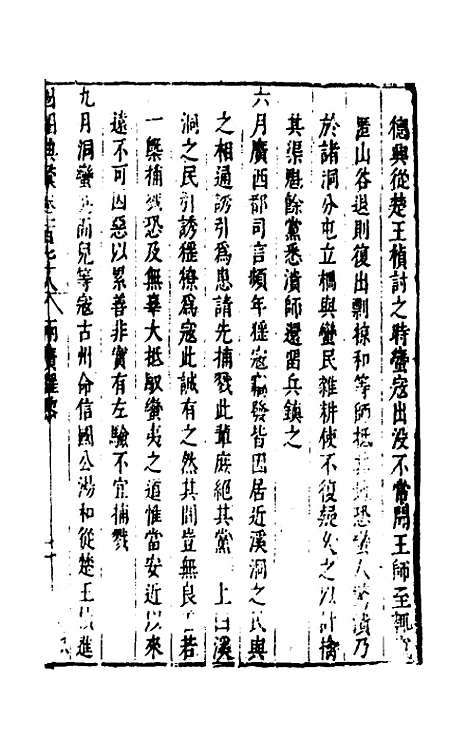 德興從楚王楨討之時蠻寇出没不常聞王師至輒
匿山谷退則復出剽掠和等師抵其地恐蠻人驚潰乃
於諸洞分屯立柵與蠻民雜耕使不復疑久之以計擒
其渠魁餘黨悉潰師還留兵鎮之
六月廣西都司言頻年猺寇竊發皆因居近溪洞之民與
之相通誘引爲患請先捕戮此輩庶絕其黨　上曰溪
洞之民引誘猺獠爲寇此誠有之然其間豈無良　若
一槩捕戮恐及無辜大抵馭蠻夷之道惟當安近以來
遠不可因惡以累善非實有左驗不宜捕戮
九月洞蠻吳面兒等寇古州命信國公湯和從楚王　進